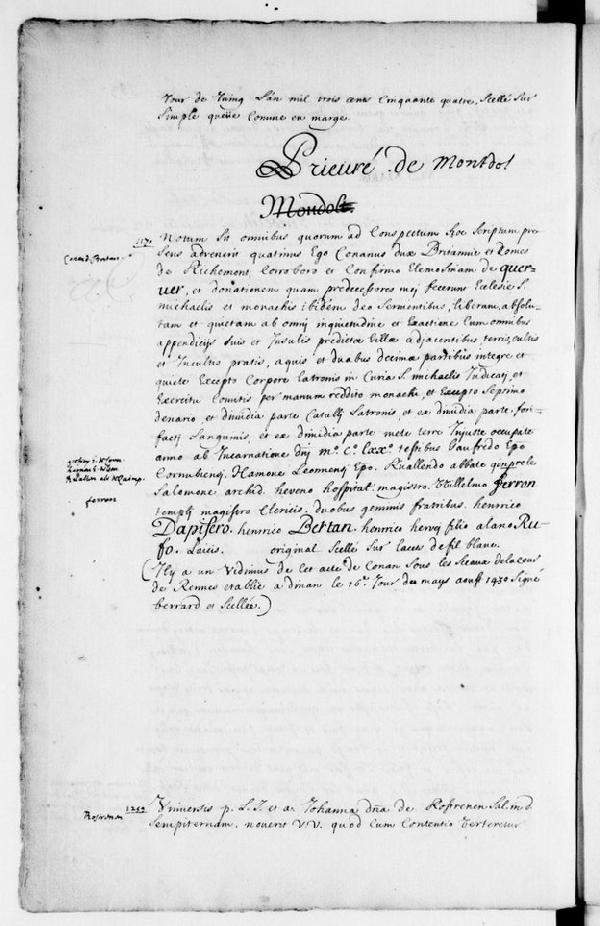 Jour de Juing L'an mil trois cens Cinquante quatre, Scellé sur
Simple queüe Comme en marge.
Prieuré de Montdol
Mondol
117.
Conan d. Bretaine
Notum sit omnibus quorum ad Conspectum hoc Scriptum pre
Sens advenerit quatinus Ego Conanus dux Britannie et Comes
de Richemont Corroboro et Confirmo Elemosinam de quer-
uer, et donationem quam predecessores mei fecerunt Eclesie S.
michaelis et monachis ibidem deo Servientibus, liberam, absolu-
tam et quietam ab omni inquietudine et Exactione Cum omnibus
appendicijs Suis et Insulis predicte Ville adjacentibus terris, cultis
et Incultis pratis, aquis et duabus decime partibus integre et
quiete Excepto Corpore latronis in Curia S. michaelis Judicatj, et
Exercitu Comitis per manum reddito monachi et Excepto Septimo
denario et dimidia parte Catallj latronis et ex dimidia parte, fori-
factj Sanguinis, et ex dimidia parte mete terre Injuste occupate
anno ab Incarnatione dnj mº. Cº. lxxº. testibus Gaufredo Epo
Cornubiensj, Hamone Leonensj Epo. Ruallendo abbate
Salomone archid. heveno hospital. magistro. Willelmo ferron
templj magistro Clericis. duobus geminis fratribus. henrico
Dapifero. henrico Bertran. henrico hervej filio alano Ru-
fo. Laicis. original Scellé Sur lacets de fil blanc.
ferron
(Il y a un Vidimus de Cet acte de Conan Sous les Sceaux de la cour
de Rennes etablie a dinan le 16e. Jour du mays aoust 1430 Signé
berrard et Scellé.)
1259
Rostrenen
Universis p. L. I. v. a. Johanna dña de Rostrenen Sal. in d.
Sempiternam. noverit V. V. quod Cum Contentio verteretur